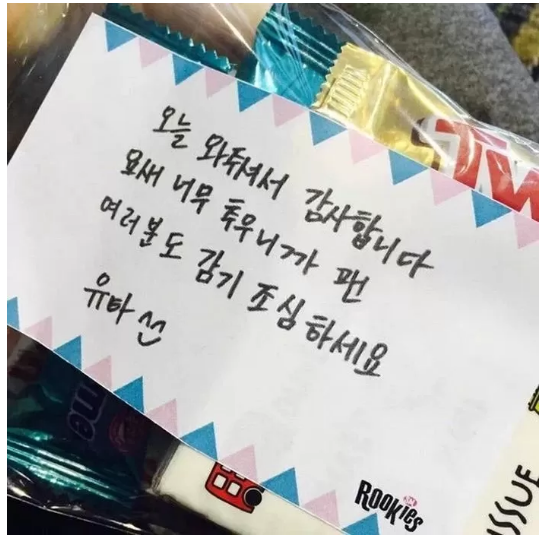 오늘 와줘서 감사합니다
요새 너무 추우니까 팬
여러분도 감기 조심하세요
유타 
me
ROOKIES
ISSUE